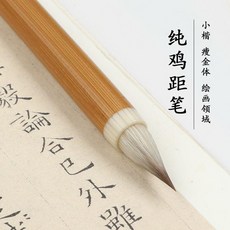 小楷 瘦金体 绘画领域
纯鸡距笔
毅論
合巳外
雖